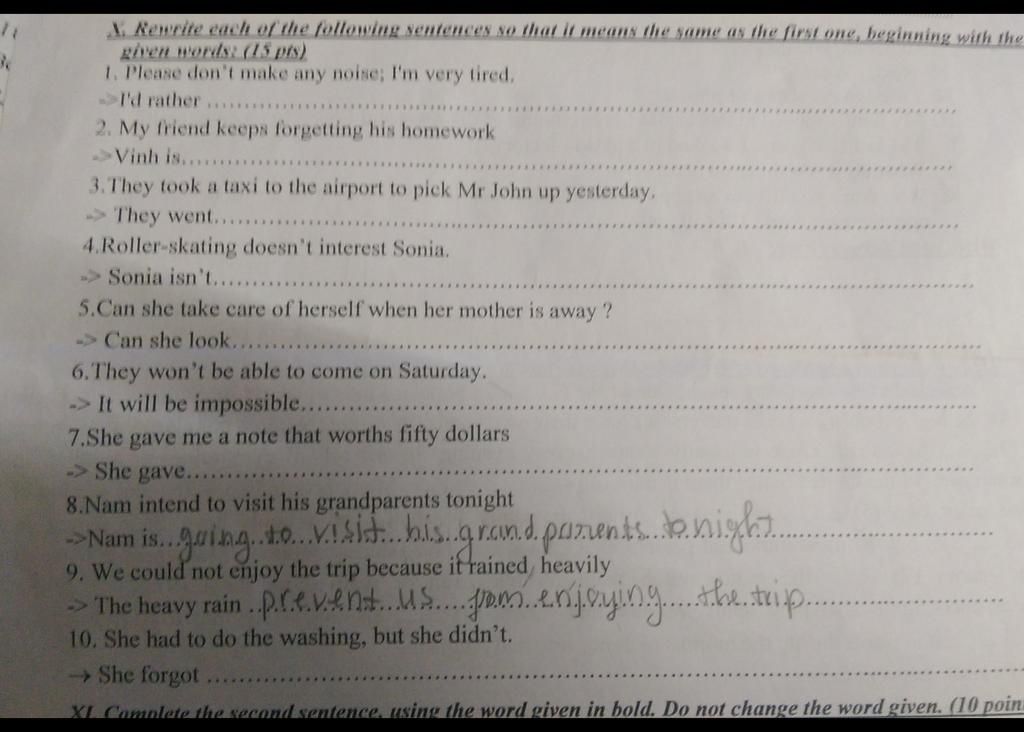 X. Rewrite each of the following sentences so that it means the same as the first one, beginning with the
given words: (15 pts)
1. Please don't make any noise; I'm very tired.
->I'd rather ................................................................
2. My friend keeps forgetting his homework
->Vinh is................................................................
3.They took a taxi to the airport to pick Mr John up yesterday.
-> They went................................................................
4.Roller-skating doesn't interest Sonia.
-> Sonia isn't................................................................
5.Can she take care of herself when her mother is away ?
-> Can she look................................................................
6.They won't be able to come on Saturday.
-> It will be impossible................................................................
7.She gave me a note that worths fifty dollars
-> She gave................................................................
8.Nam intend to visit his grandparents tonight
->Nam is...going...to...visit...his...grandparents...tonight................
9. We could not enjoy the trip because it rained heavily
-> The heavy rain ..prevent...us....from..enjoying.....the.trip................
10. She had to do the washing, but she didn't.
→ She forgot ................................................................
XI. Complete the second sentence, using the word given in bold. Do not change the word given. (10